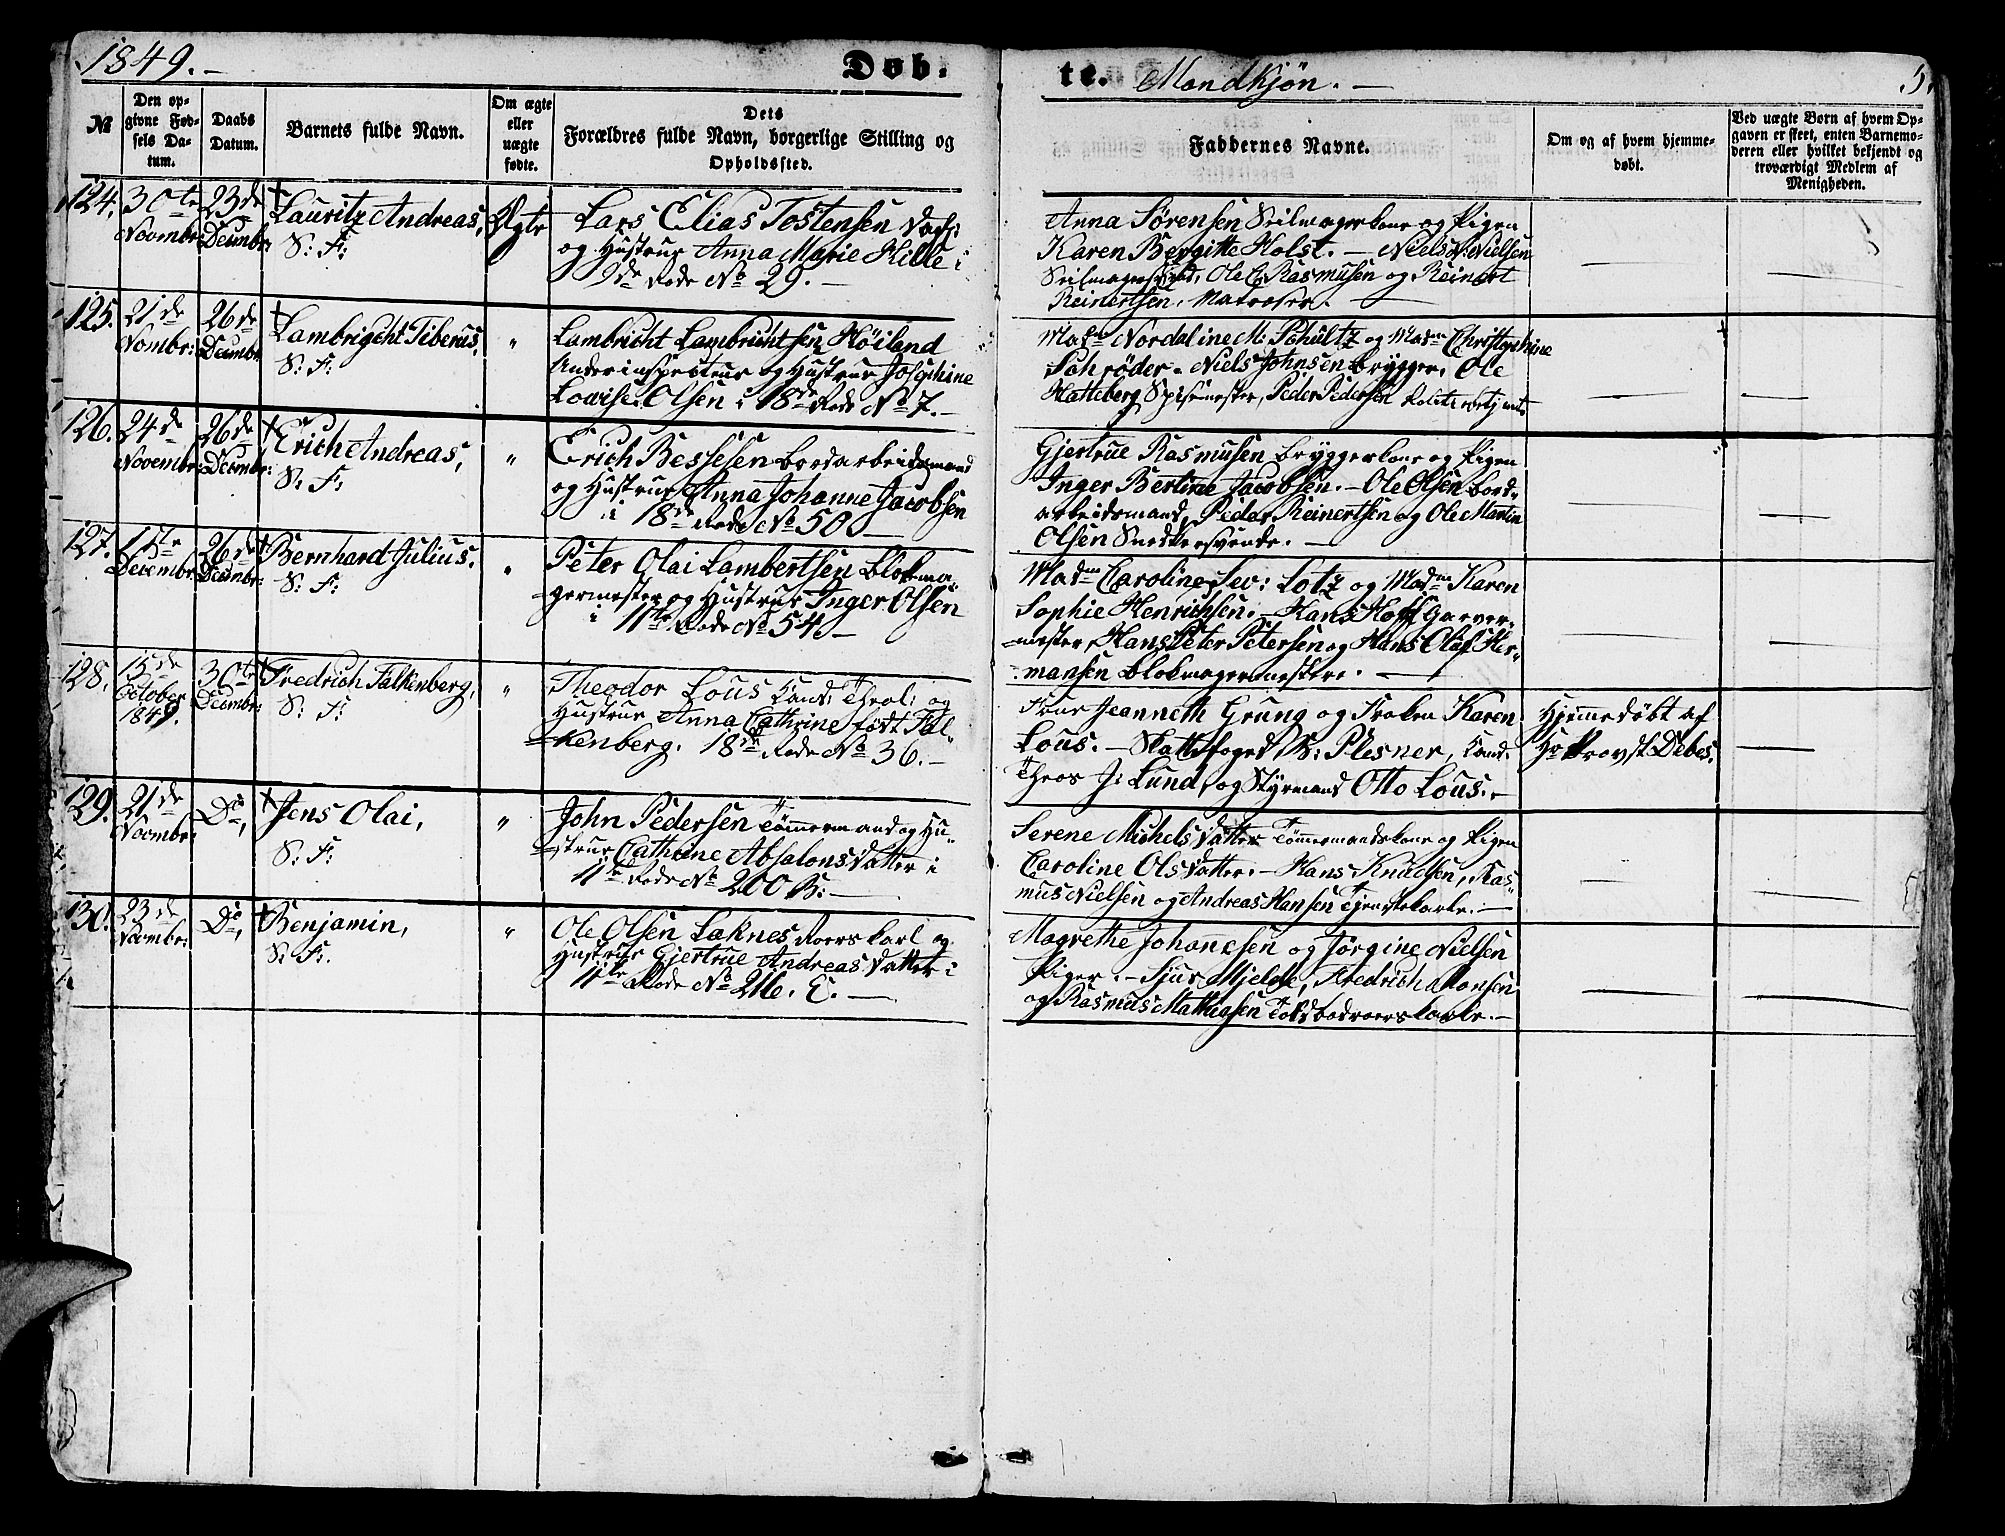 1849.
Døb.
te. Mandkjøn.
5.
№
Den op-
givne Fød-
sels Da-
tum.
Daabs
Datum.
Barnets fulde Navn.
Om ægte
eller
uægte
fødte.
Dets
Forældres fulde Navn, borgerlige Stilling og
Opholdssted.
Faddernes Navne.
Om og af hvem hjemme-
døbt.
Ved uægte Børn af hvem Op-
gaven er skeet, enten Barnemo-
deren eller hvilket bekjendt og
troværdigt Medlem af
Menigheden.
124.
30te
Novembr:
23de
Decembr:
Lauritz Andreas,
S: F:
Ægte
Lars Elias Tostensen
og Hustrue Anna Marie Hille i
9de Rode No 29.
Anna Sørensen Seilmagerkone og Pigen
Karen Bergitte Holst. — Niels N: Nielsen
Seilmagersvend, Ole C. Rasmusen og Reinert
Reinertsen, Matroser.
125.
21de
Novmbr:
26de
Decembr
Lambrigcht Tiberius,
S: F:
"
Lambricht Lambrichtsen Høiland
Underinspecteur og Hustrue Josephine
Lovise Olsen i 18de Rode No 7.
Madm Nordaline M: Schultz og Madm Christophine
Schrøder. Niels Johnsen Brygger, Ole
Hatteberg Spisemester, Peder Pedersen Politiebetjent
126.
24de
Novembr:
26de
Decembr:
Erich Andreas,
S: F:
"
Erich Bessesen Bordarbeidsmand
og Hustrue Anna Johanne Jacobsen
i 18de Rode No 50
Gjertrue Rasmusen Bryggerkone og Pigen
Inger Bertine Jacobsen. — Ole Olsen Bord-
arbeidsmand, Peder Reinertsen og Ole Martin
Olsen Snedkersvende.
127.
1ste
Decembr:
26de
Decembr:
Bernhard Julius.
S: F:
"
Peter Olai Lambertsen Blokma-
germester og Hustrue Inger Olsen
i 11te Rode No 54.
Madm Caroline Sev: Lotz og Madm Karen
Sophie Henrichsen. — Hans Hoff Garver-
mester, Hans Peter Petersen og Hans Olaf Her-
mansen Blokmagermestere.
128.
15de
October
1849.
30te
Decembr:
Fredrich Falkenberg,
S: F:
"
Theodor Lous Cand: Theol: og
Hustrue Anna Cathrine født Fal-
kenberg. 18de Rode No 36.
Frue Jeanneth Grung og Frøken Karen
Lous. — Skattefoged Plesner, Cand:
Theos J: Lund, og Styrmand Otto Lous.
Hjemmedøbt af
Hr Provst Debes.
129.
21de
Novembr:
Do,
Jens Olai,
S: F:
"
John Pedersen Tømmermand og Hu-
strue Cathrine Absalons Datter i
11te Rode No 200 B:
Serene Michels Datter Tømmermandskone og Pigen
Caroline Ols Datter. — Hans Knudsen, Ras-
mus Nielsen og Andreas Hansen Tjenstekarle.
130.
23de
Novembr:
Do,
Benjamin,
S: F:
"
Ole Olsen Laknes Roerskarl og
Hustrue Gjertrue Andreas Datter i
11te Rode No 216. E.
Magrethe Johannesen og Jørgine Nielsen
Piger. — Sjur Mjelde, Fredrich Monsen
og Rasmus Mathiasen Toldbodroerskarle.